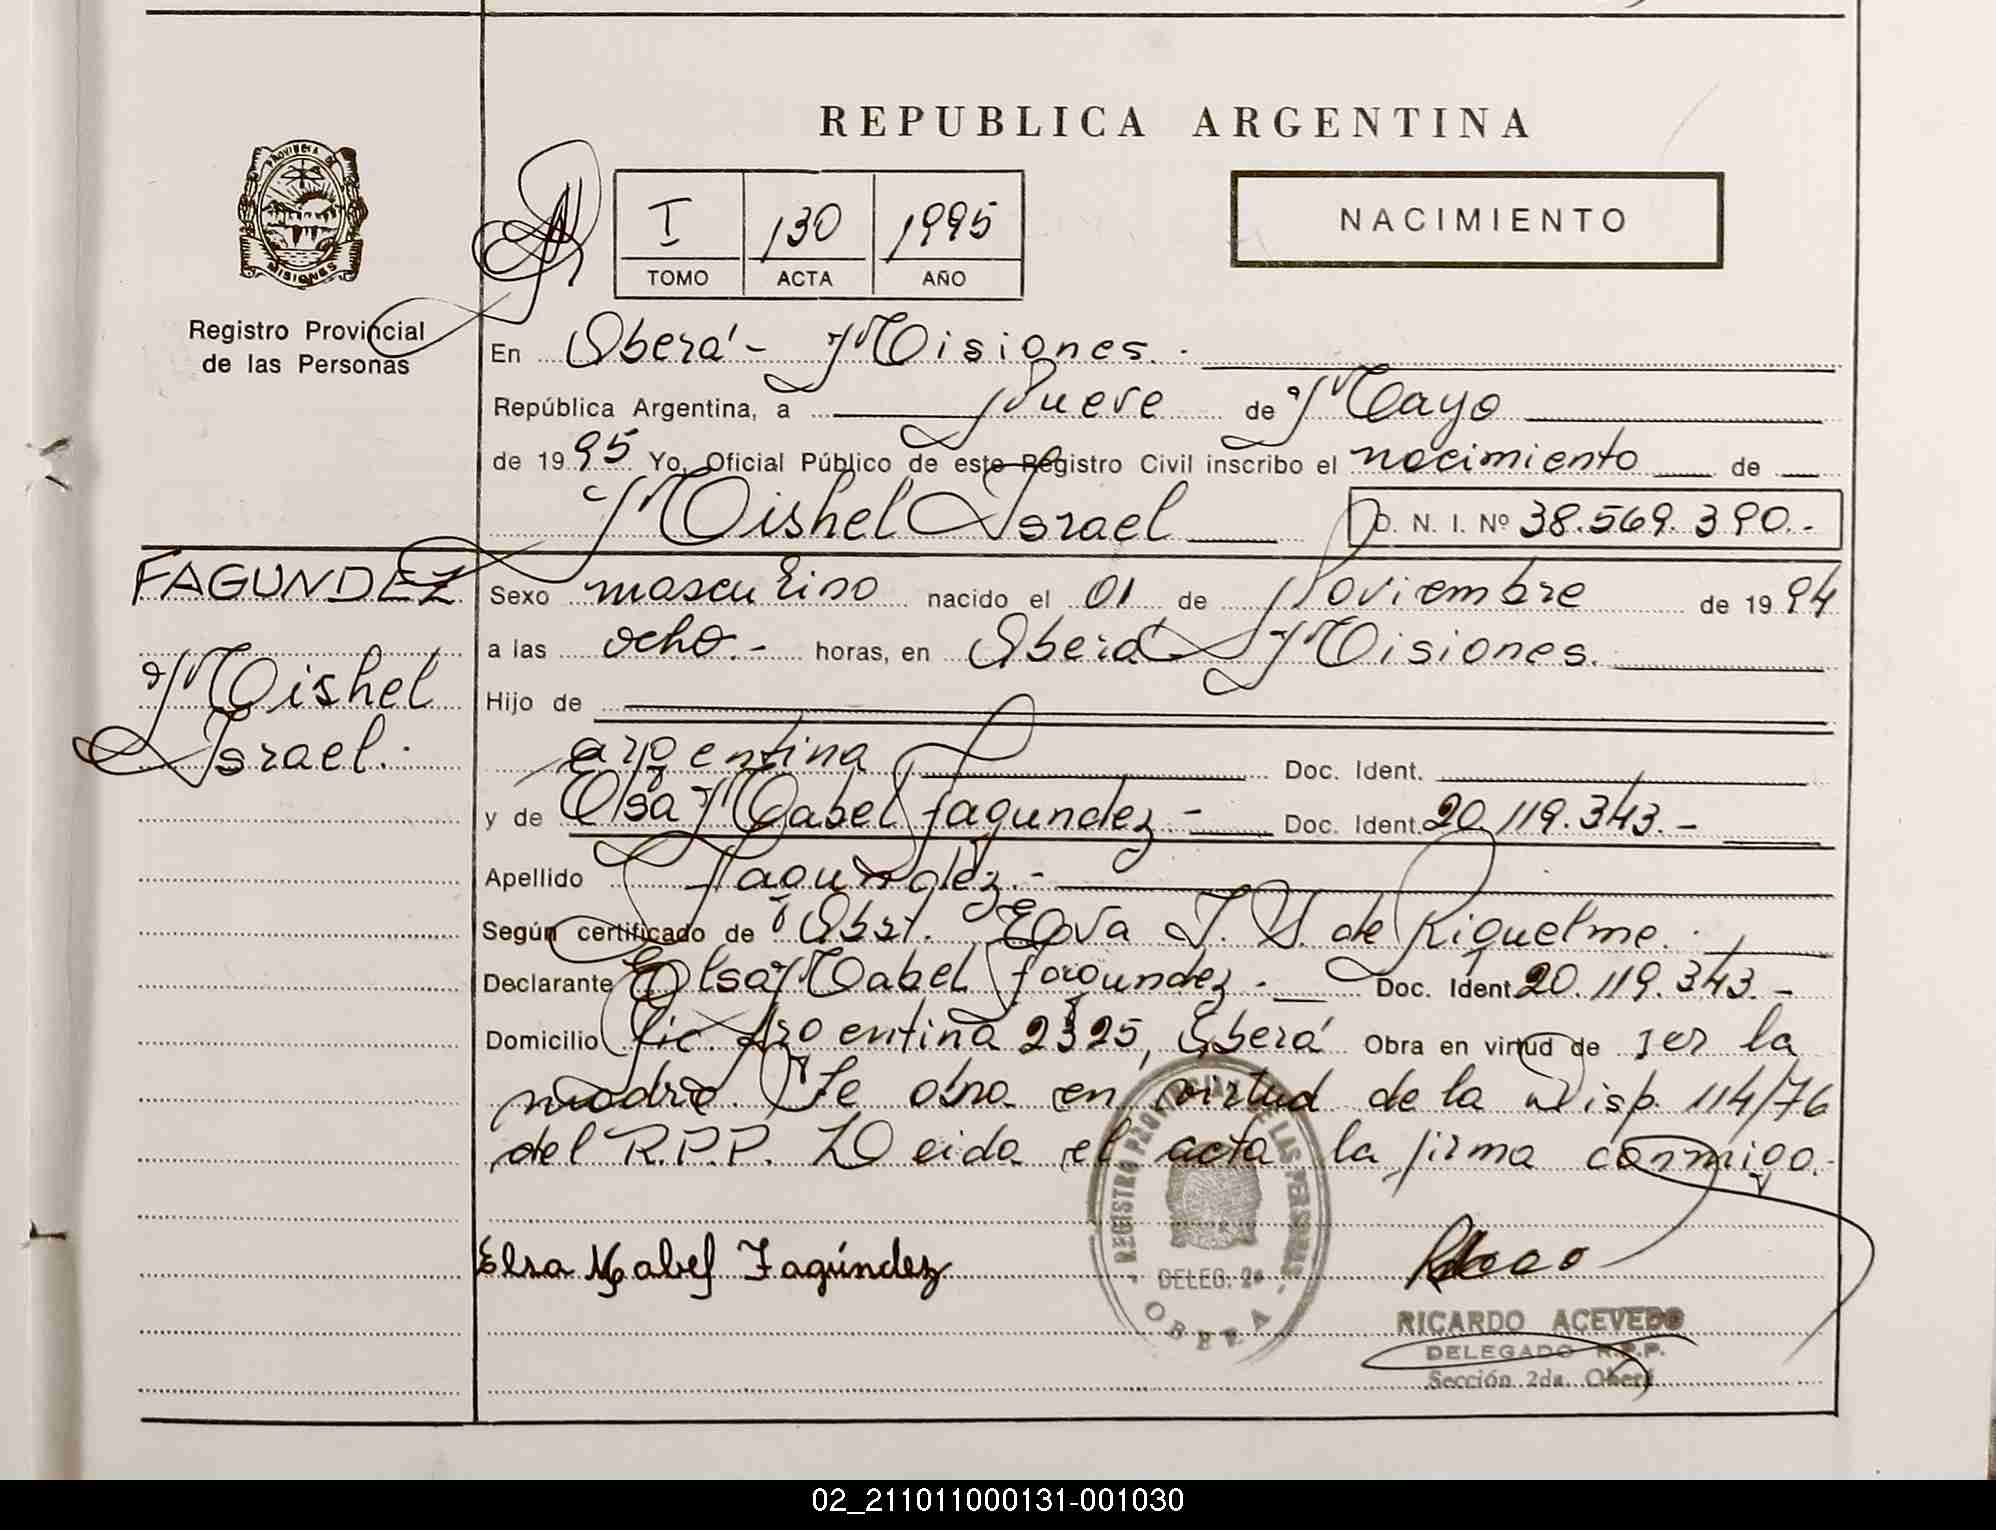 REPUBLICA ARGENTINA
PROVINCIA DE
MISIONES
Registro Provincial
de las Personas
I 130 1995
TOMO ACTA AÑO
NACIMIENTO
En Oberá - Misiones.-
República Argentina, a Nueve de Mayo
de 1995 Yo, Oficial Público de este Registro Civil inscribo el nacimiento de
Moishel Israel D. N. I. Nº 38.569.390.-
FAGUNDEZ
Moishel
Israel.
Sexo masculino nacido el 01 de Noviembre de 1994
a las ocho.- horas, en Oberá Misiones.
Hijo de
argentina Doc. Ident.
y de Elsa Mabel Fagundez.- Doc. Ident. 20.119.343.-
Apellido Fagundez.-
Según certificado de Obst. Elva de Riquelme.
Declarante Elsa Mabel Fagundez.- Doc. Ident. 20.119.343.-
Domicilio Argentina 2325, Oberá Obra en virtud de ser la
madre. Se obra en virtud de la Disp. 114/76
del R.P.P. Leida el acta la firma conmigo.-
Elsa Mabel Fagúndez
REGISTRO PROVINCIAL DE LAS PERSONAS
DELEG. 2a
OBERA
RICARDO ACEVEDO
DELEGADO R.P.P.
Sección 2da. Oberá
02_211011000131-001030